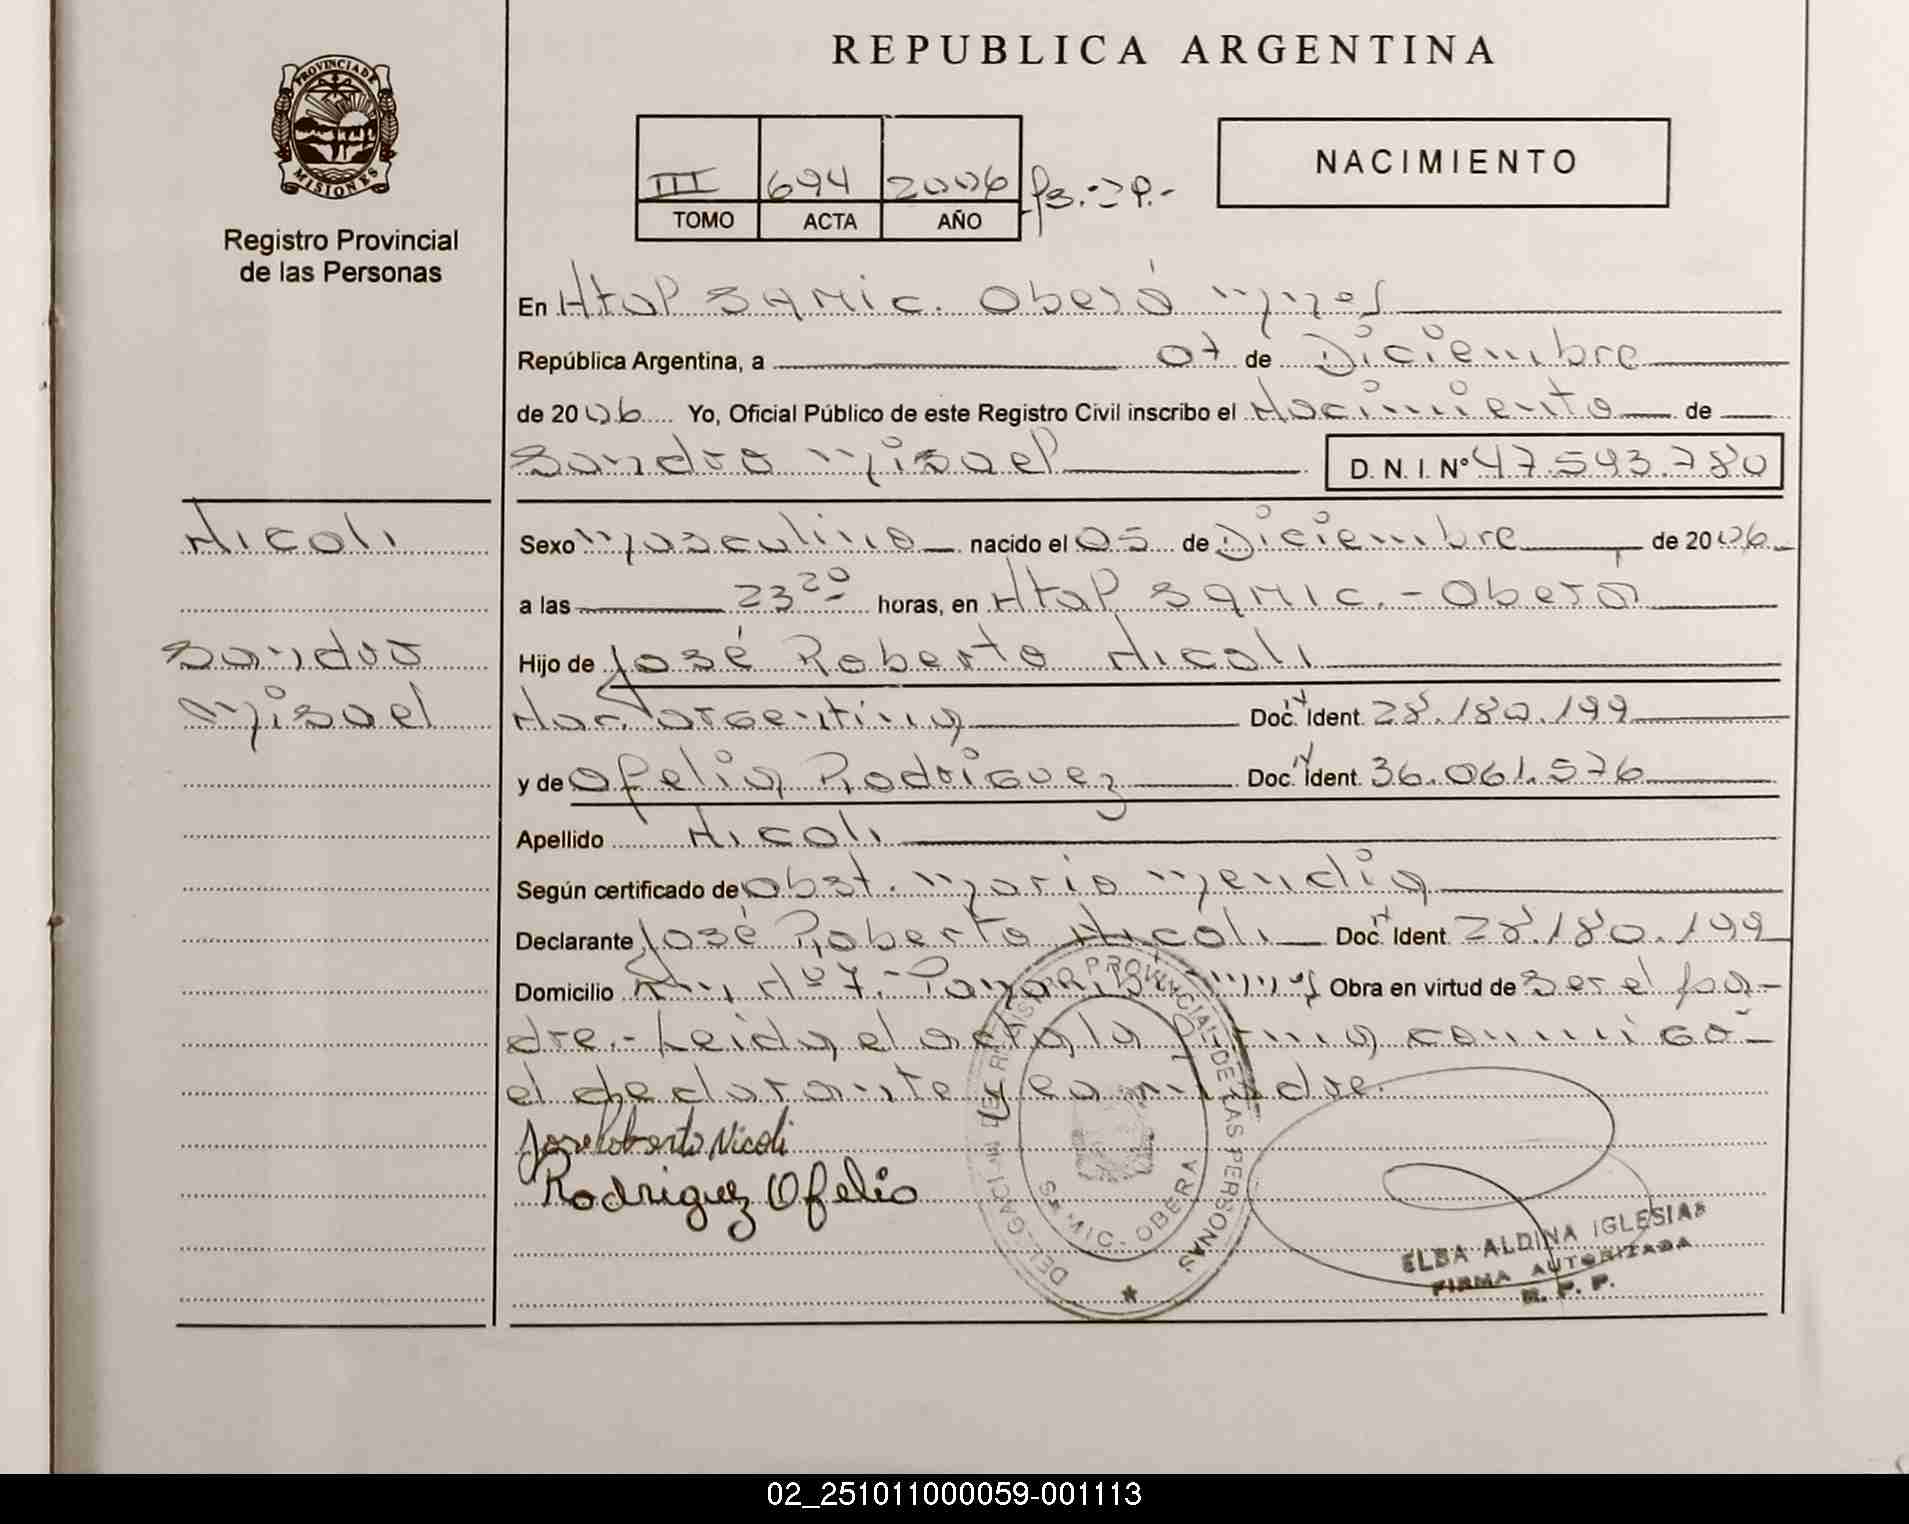 REPUBLICA ARGENTINA
PROVINCIA DE
MISIONES
Registro Provincial
de las Personas
III 694 2006
TOMO ACTA AÑO
NACIMIENTO
En Htal SAMIC. Oberá Mnes
República Argentina, a 07 de Diciembre
de 2006 Yo, Oficial Público de este Registro Civil inscribo el Nacimiento de
Sandro Misael D. N. I. N° 47.593.780
Nicoli
Sandro
Misael
Sexo Masculino nacido el 05 de Diciembre de 2006
a las 23 20 horas, en Htal SAMIC. - Oberá
Hijo de José Roberto Nicoli
Nac. argentina Doc. N Ident. 28.180.199
y de Ofelia Rodriguez Doc. N Ident. 36.061.576
Apellido Nicoli
Según certificado de Obst. Maria Mendia
Declarante José Roberto Nicoli Doc. N Ident. 28.180.199
Domicilio Nº 7. Panambí Mnes Obra en virtud de ser el pa-
dre.- Leida el acta la firma conmigo
el declarante y la madre.
Jose Roberto Nicoli
Rodriguez Ofelia
DELEGACION DEL REGISTRO PROVINCIAL DE LAS PERSONAS
SAMIC - OBERA
ELBA ALDINA IGLESIAS
FIRMA AUTORIZADA
R. P. P.
02_251011000059-001113